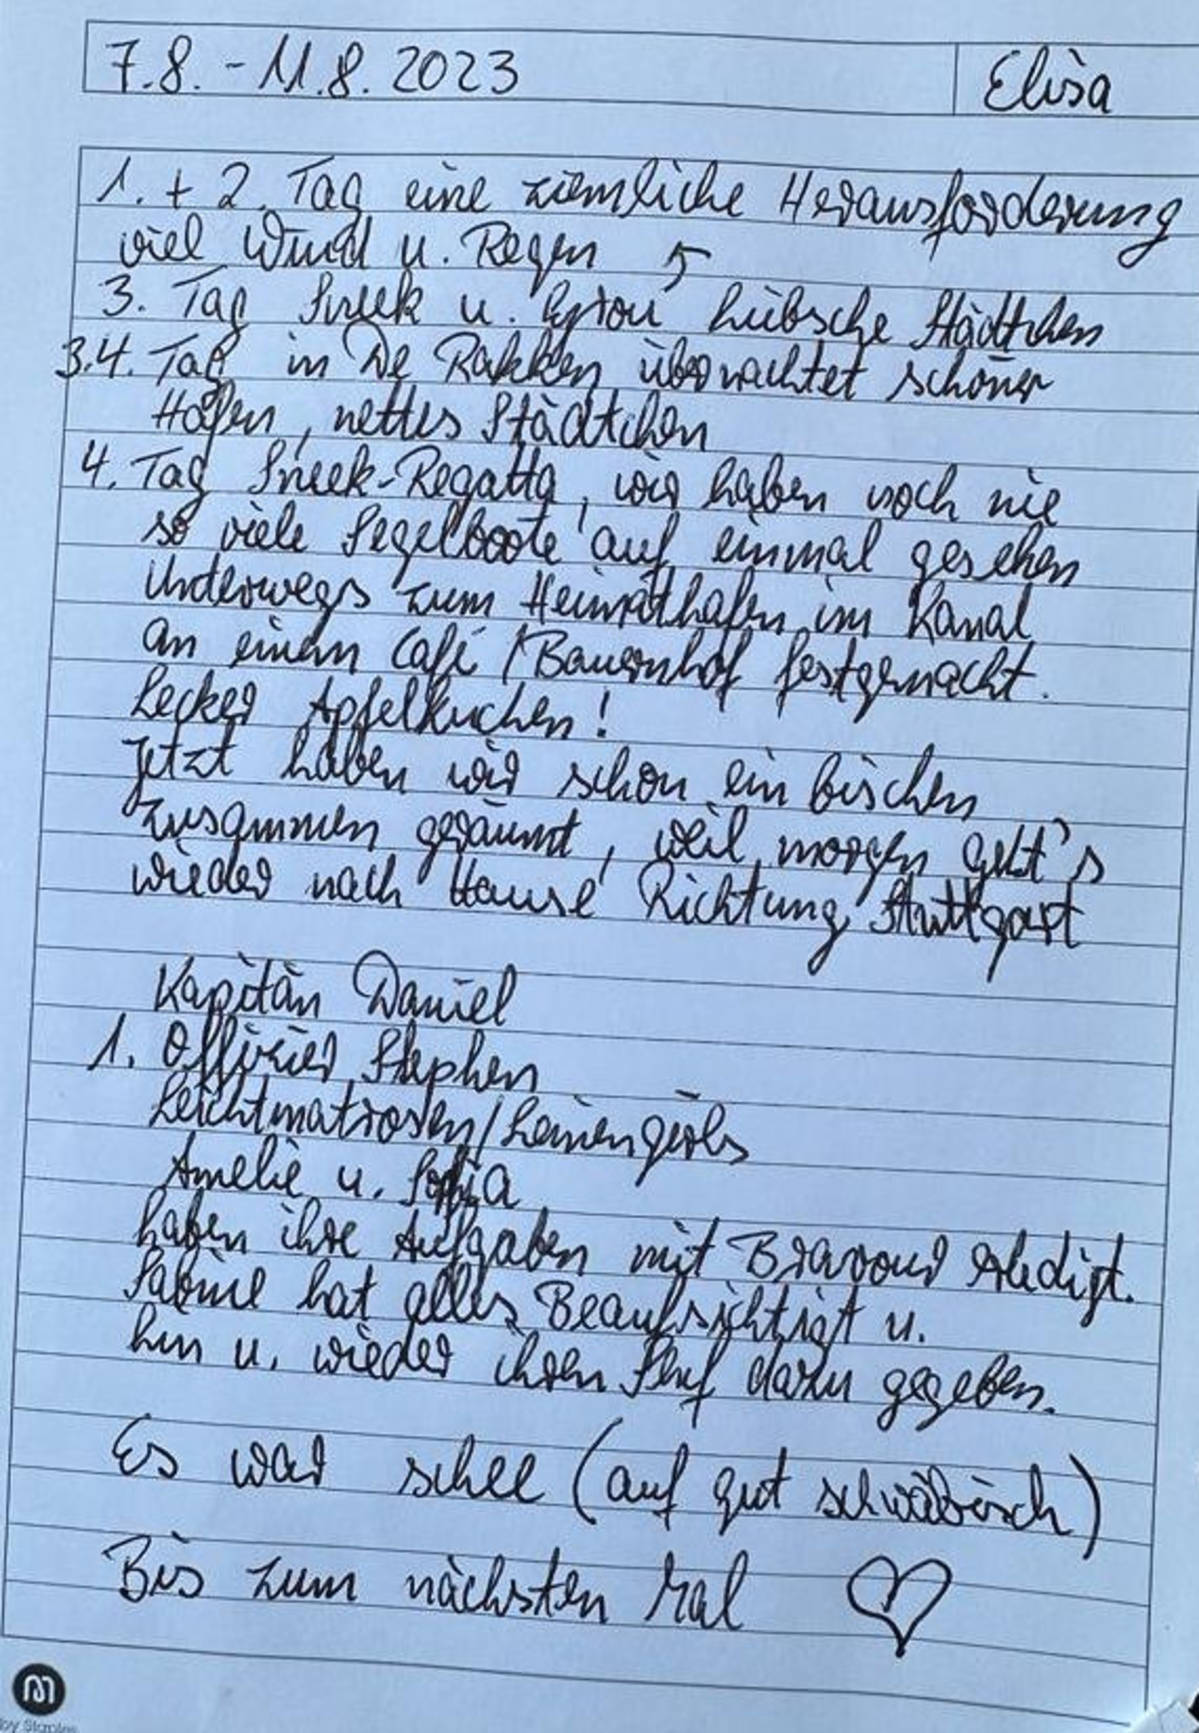 7.8. - 11.8. 2023 Elisa
1. + 2. Tag eine ziemliche Herausforderung
viel Wind u. Regen 5
3. Tag Sneek u. Grou hübsche Städtchen
3.4. Tag in De Rakken übernachtet schöner
Hafen, nettes Städtchen
4. Tag Sneek-Regatta, wir haben noch nie
so viele Segelboote auf einmal gesehen
Unterwegs zum Heimathafen im Kanal
an einem Café / Bauernhof festgemacht.
Lecker Apfelkuchen!
Jetzt haben wir schon ein bischen
zusammen geräumt, weil morgen geht's
wieder nach Hause Richtung Stuttgart
Kapitän Daniel
1. Offizier Stephen
Leichtmatrosen/Leinengirls
Amelie u. Sofia
haben ihre Aufgaben mit Bravour erledigt.
Sabine hat alles Beaufsichtigt u.
hin u. wieder ihren Senf dazu gegeben.
Es war schee (auf gut schwäbisch)
Bis zum nächsten Mal
by Staples